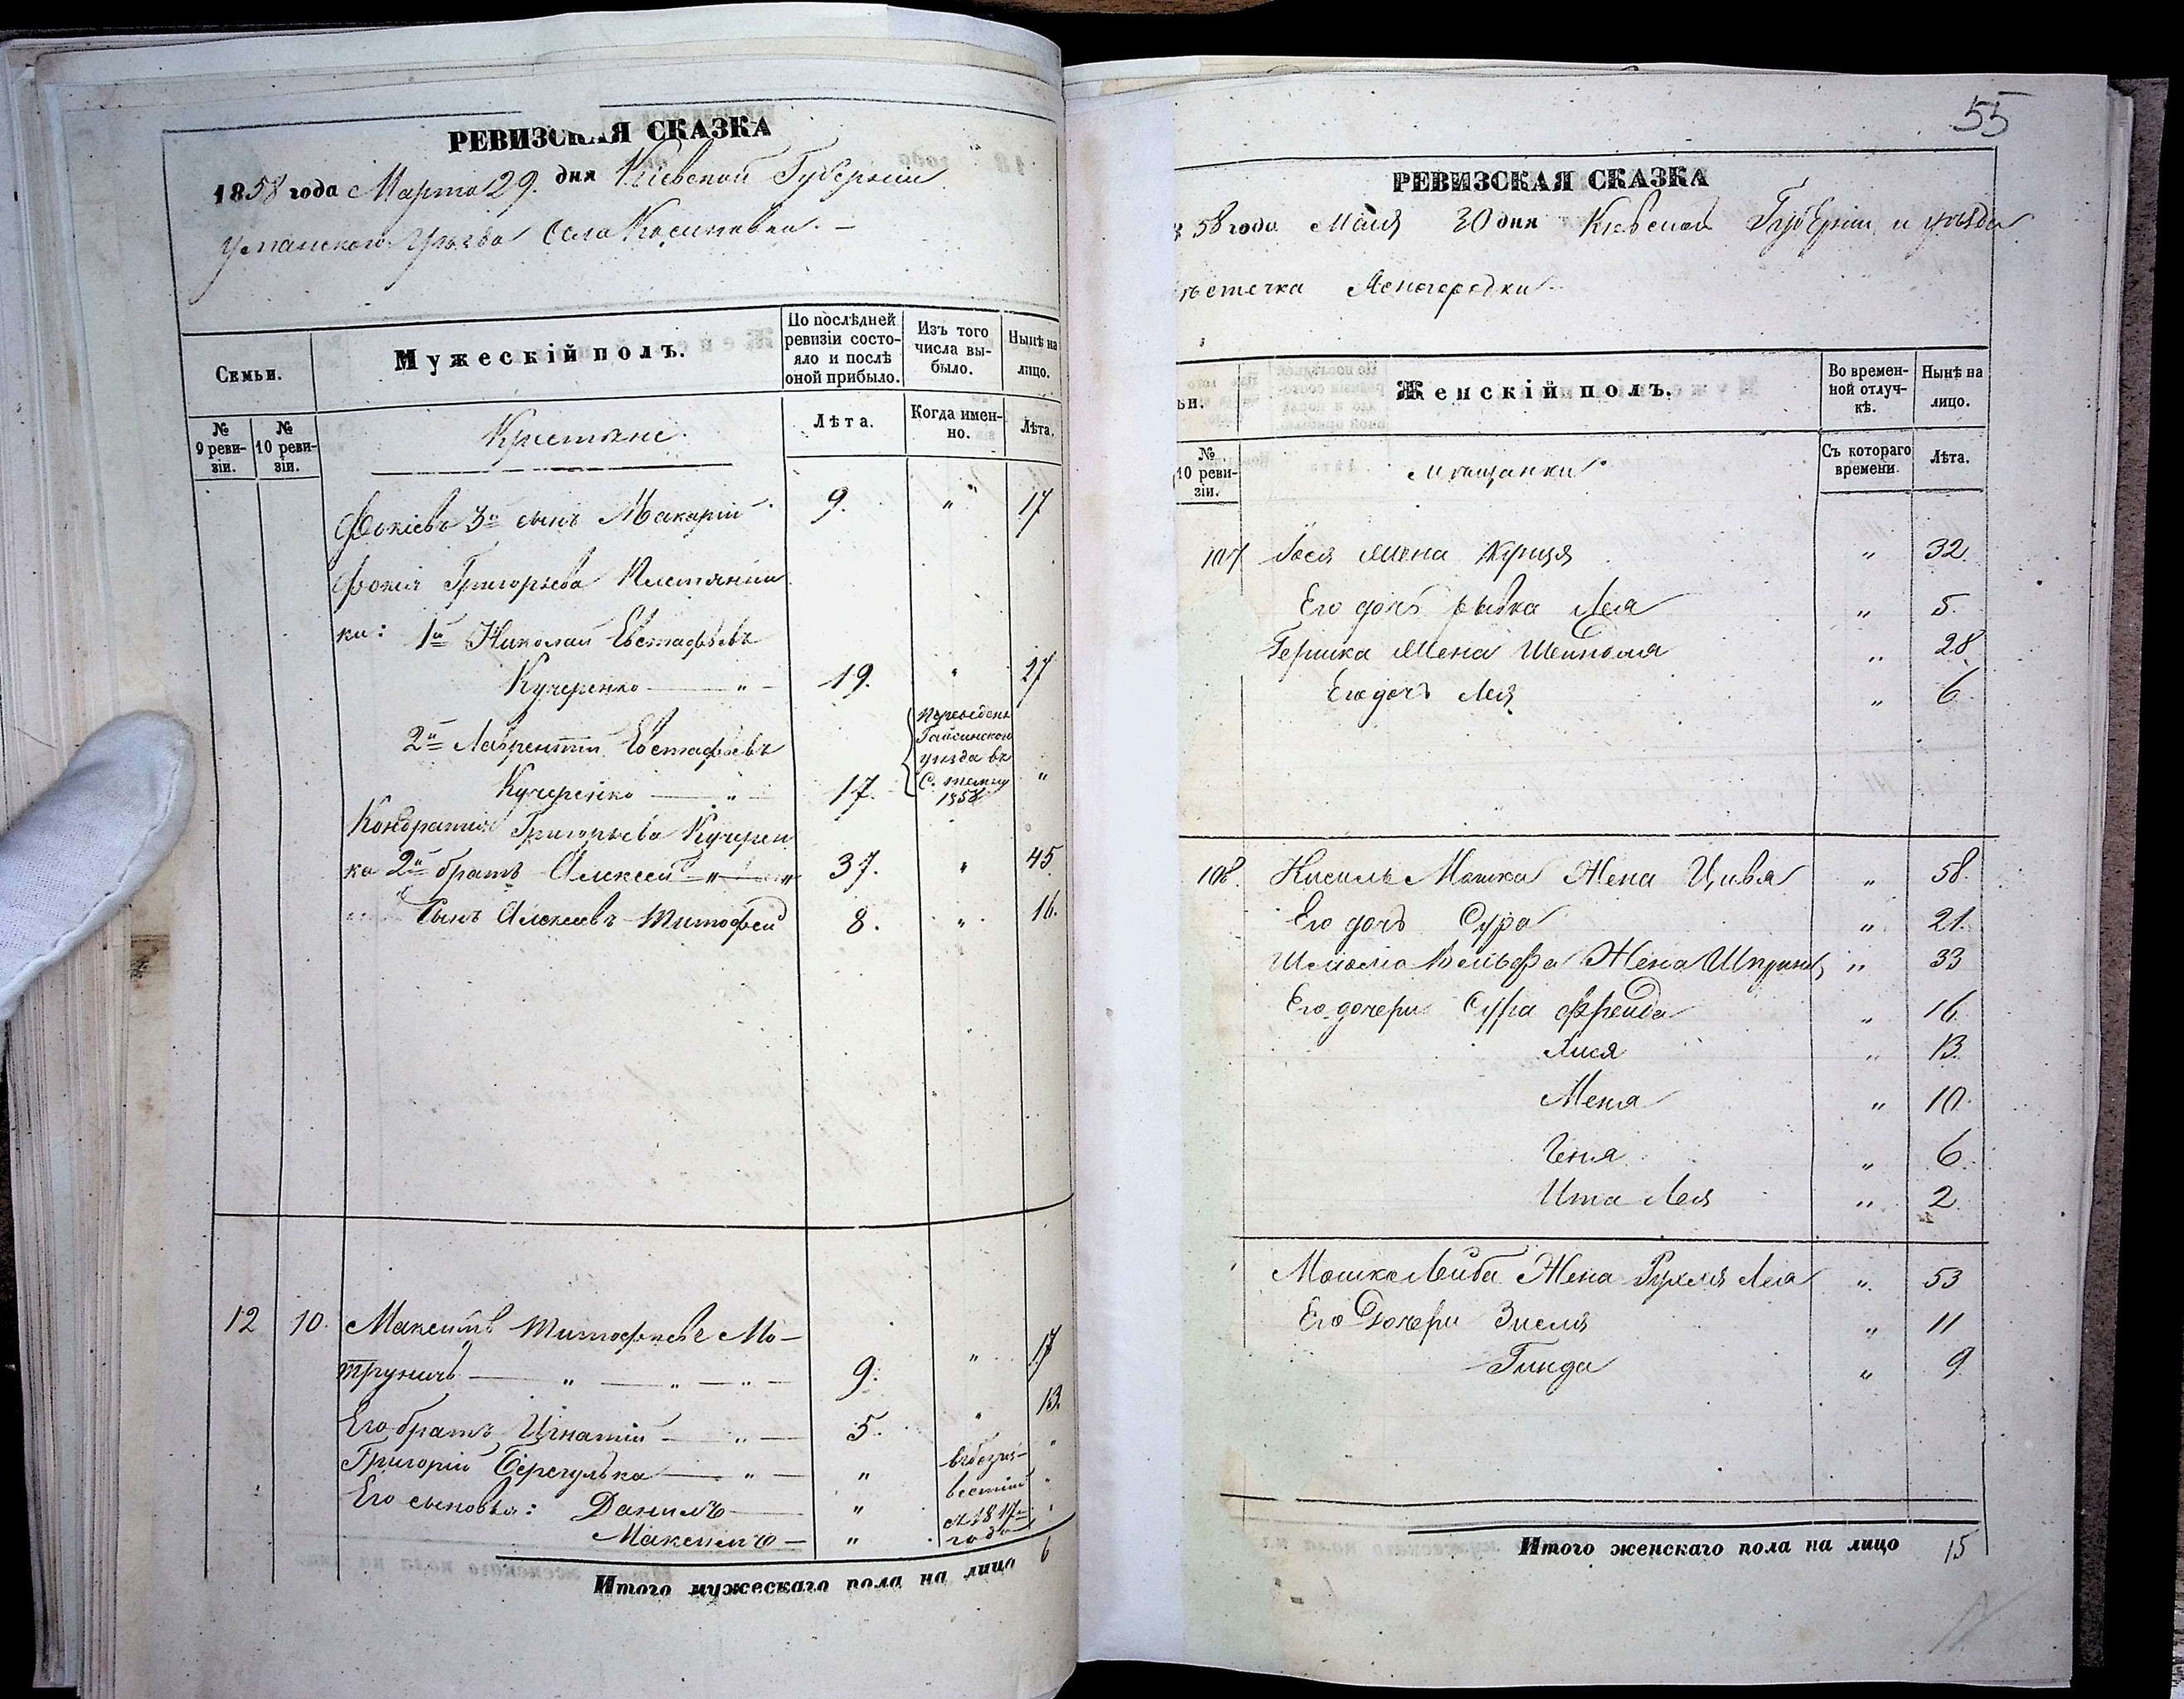 РЕВИЗСКАЯ СКАЗКА
1858 года Марта 29. дня Кіевской Губерніи
Уманскаго Уѣзда Села
Семьи.
Мужескій полъ.
По послѣдней ревизіи состояло и послѣ оной прибыло.
Изъ того числа выбыло.
Нынѣ на лицо.
№ 9 ревизіи.
№ 10 ревизіи.
Крестьяне.
Лѣта.
Когда именно.
Лѣта.
Фокіевъ 3й сынъ Макарій 9. " 17
Фокія Григорьева
ки: 1й Николай Евстафьевъ
Кучеренко — " — 19. " 27
2й Лаврентій Евстафьевъ
Кучеренко — " — 17. "
Переведенъ
Гайсинскаго
уѣзда въ
С.
1858
Кондратія Григорьева Кучерен
ка 2й братъ Алексей — " — " 37. " 45
Сынъ Алексеевъ Тимофей 8. " 16.
12 10. Максимъ Тимофеевъ Мо-
труничъ — " — " — " — 9. " 17
Его братъ Игнатій — " — 5. " 13.
Григорій — " — " въ безиз- "
Его сыновья: Данилъ — " вестній "
Максимъ — " с 1847 года "
Итого мужескаго пола на лицо 6
55
РЕВИЗСКАЯ СКАЗКА
58 года Мая 30 дня Кіевской Губерніи и уѣзда
ѣстечка Ясногородки
ьи.
Женскій полъ.
Во временной отлучкѣ.
Нынѣ на лицо.
№ 10 ревизіи.
Мѣщанки
Съ котораго времени.
Лѣта.
107 Іося Жена " 32.
Его дочь Рывка Лея " 5.
Гершка Жена Шейндля " 28
Его дочь Лея " 6.
108. Мошка Жена Цивя " 58.
Его дочь Сура " 21.
Шлиома Вольфа Жена " 33
Его дочери Сура Фрейда " 16
Хися " 13.
Меня " 10.
Геня " 6.
Ита Лея " 2
Мошко Лейба Жена Рухля Лея " 53
Его Дочери Зисля " 11
Гинда " 9.
Итого женскаго пола на лицо 15